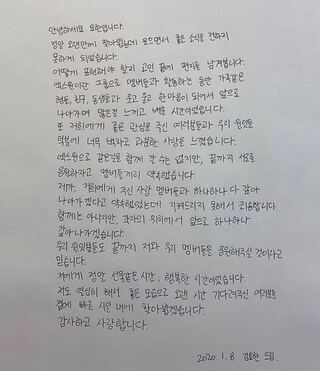 안녕하세요 요한입니다.
정말 오랜만에 찾아뵙는데 웃으면서 좋은 소식을 전하지
못하게 되었습니다.
어떻게 표현해야 할지 고민 끝에 편지를 남겨봅니다.
엑스원이란 그룹으로 멤버들과 활동하는 동안 가족같은
형들, 친구, 동생들과 웃고 울고 한마음이 되어서 앞으로
나아가며 많은걸 느끼고 배운 시간이었습니다.
또 저희에게 좋은 관심을 주신 여러분들과 우리 원잇들
덕분에 너무 벅차고 과분한 사랑을 느꼈습니다.
엑스원으로 같은길을 함께 갈 수는 없지만, 끝까지 서로
응원하자고 멤버들끼리 약속했습니다.
제가, 저희에게 주신 사랑 멤버들과 하나하나 다 갚아
나아가겠다고 약속했었는데 지켜드리지 못해서 죄송합니다.
함께는 아니지만, 각자의 위치에서 앞으로 하나하나
갚아나가겠습니다.
우리 원잇분들도 끝까지 저와 우리 멤버들을 응원해주실 것이라고
믿습니다.
저에게 정말 선물같은 시간, 행복한 시간이었습니다.
저도 열심히 해서 좋은 모습으로 오랜 시간 기다려주신 여러분들
곁에 빠른 시일 내에 찾아뵙겠습니다.
감사하고 사랑합니다.
2020. 1. 8 김요한 드림